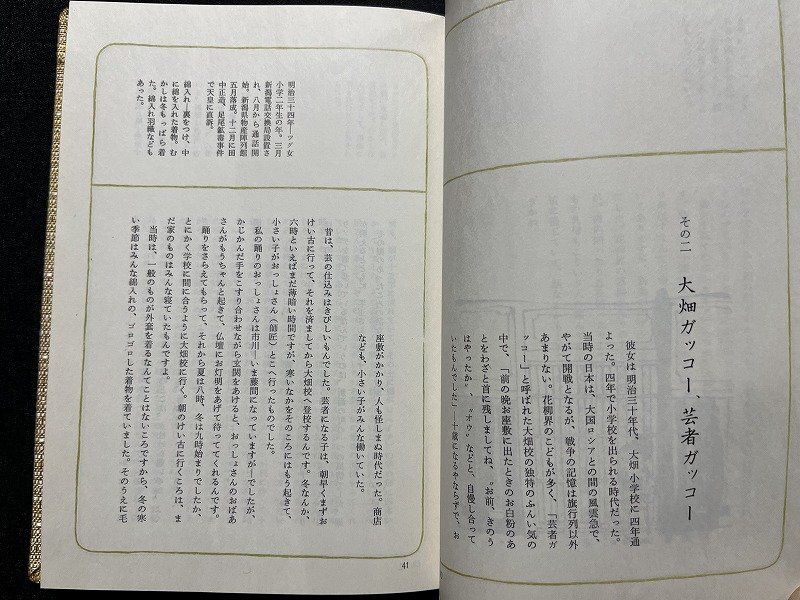 その二　大畑ガッコー、芸者ガッコー
彼女は明治三十年代、大畑小学校に四年通
よった。四年で小学校を出られる時代だった。
当時の日本は、大国ロシアとの間の風雲急で、
やがて開戦となるが、戦争の記憶は旗行列以外
あまりない。花柳界のこどもが多く、「芸者ガ
ッコー」と呼ばれた大畑校の独特のふんい気の
中で、「前の晩お座敷に出たときのお白粉のあ
とをわざと首に残しましてね、〝お前、きのう
はやったか〟、〝オウ〟などと、自慢し合って
いたもんでした」―十歳になるやならずで、お
座敷がかかり、人も怪しまぬ時代だった。商店
なども、小さい子がみんな働いていた。
昔は、芸の仕込みはきびしいもんでした。芸者になる子は、朝早くまずお
けい古に行って、それを済ましてから大畑校へ登校するんです。冬なんか、
六時といえばまだ薄暗い時間ですが、寒いなかをそのころにはもう起きて、
小さい子がおっしょさん（師匠）とこへ行ったものでした。
私の踊りのおっしょさんは市川―いま藤間になっていますが―でしたが、
かじかんだ手をこすり合わせながら玄関をあけると、おっしょさんのおばあ
さんがもうちゃんと起きて、仏壇にお灯明をあげて待っててくれるんです。
踊りをさらえてもらって、それから夏は八時、冬は九時始まりでしたか、
とにかく学校に間に合うように大畑校に行く。朝のけい古に行くころは、ま
だ家のものはみんな寝ていたもんですよ。
当時は、一般のものが外套を着るなんてことはないころですから、冬の寒
い季節はみんな綿入れの、ゴロゴロした着物を着ていました。そのうえに毛
明治三十四年―ツグ女
小学二年生の年。三月
新潟電話交換局設置さ
れ、八月から通話開
始。新潟県物産陳列館
五月落成。十二月に田
中正造、足尾鉱毒事件
で天皇に直訴。
綿入れ―裏をつけ、中
に綿を入れた着物。む
かしは冬もっぱら着
た。綿入れ羽織なども
あった。
41